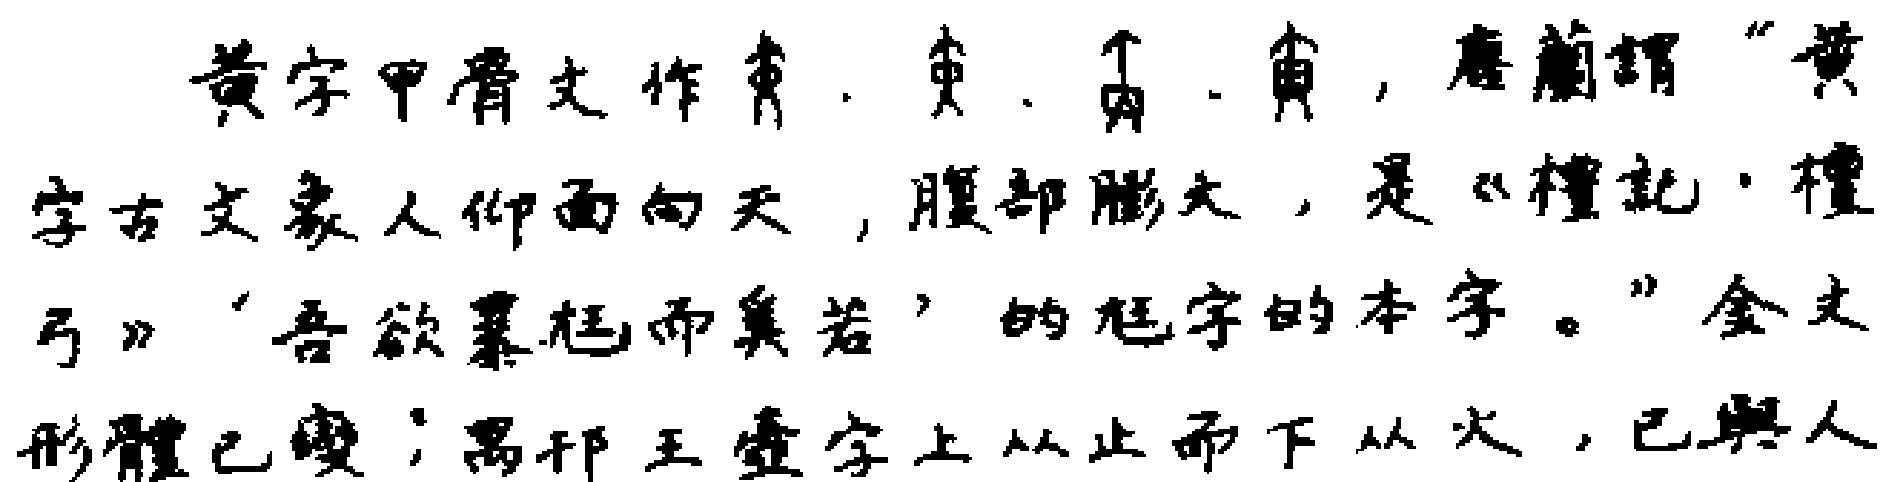 黃字甲骨文作 . . . ，唐蘭謂“黃
字古文象人仰面向天，腹部膨大，是《禮記·檀
弓》‘吾欲暴尪而奚若’的尪字的本字。”金文
形體已變；禺邗王壺字上从止而下从火，已與人